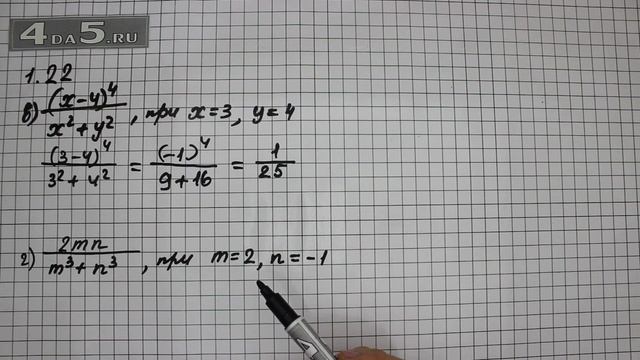 4DA5.RU
1.22
в) (x-y)⁴/(x²+y²), при x=3, y=4
(3-4)⁴/(3²+4²) = (-1)⁴/(9+16) = 1/25
г) 2mn/(m³+n³), при m=2, n=-1